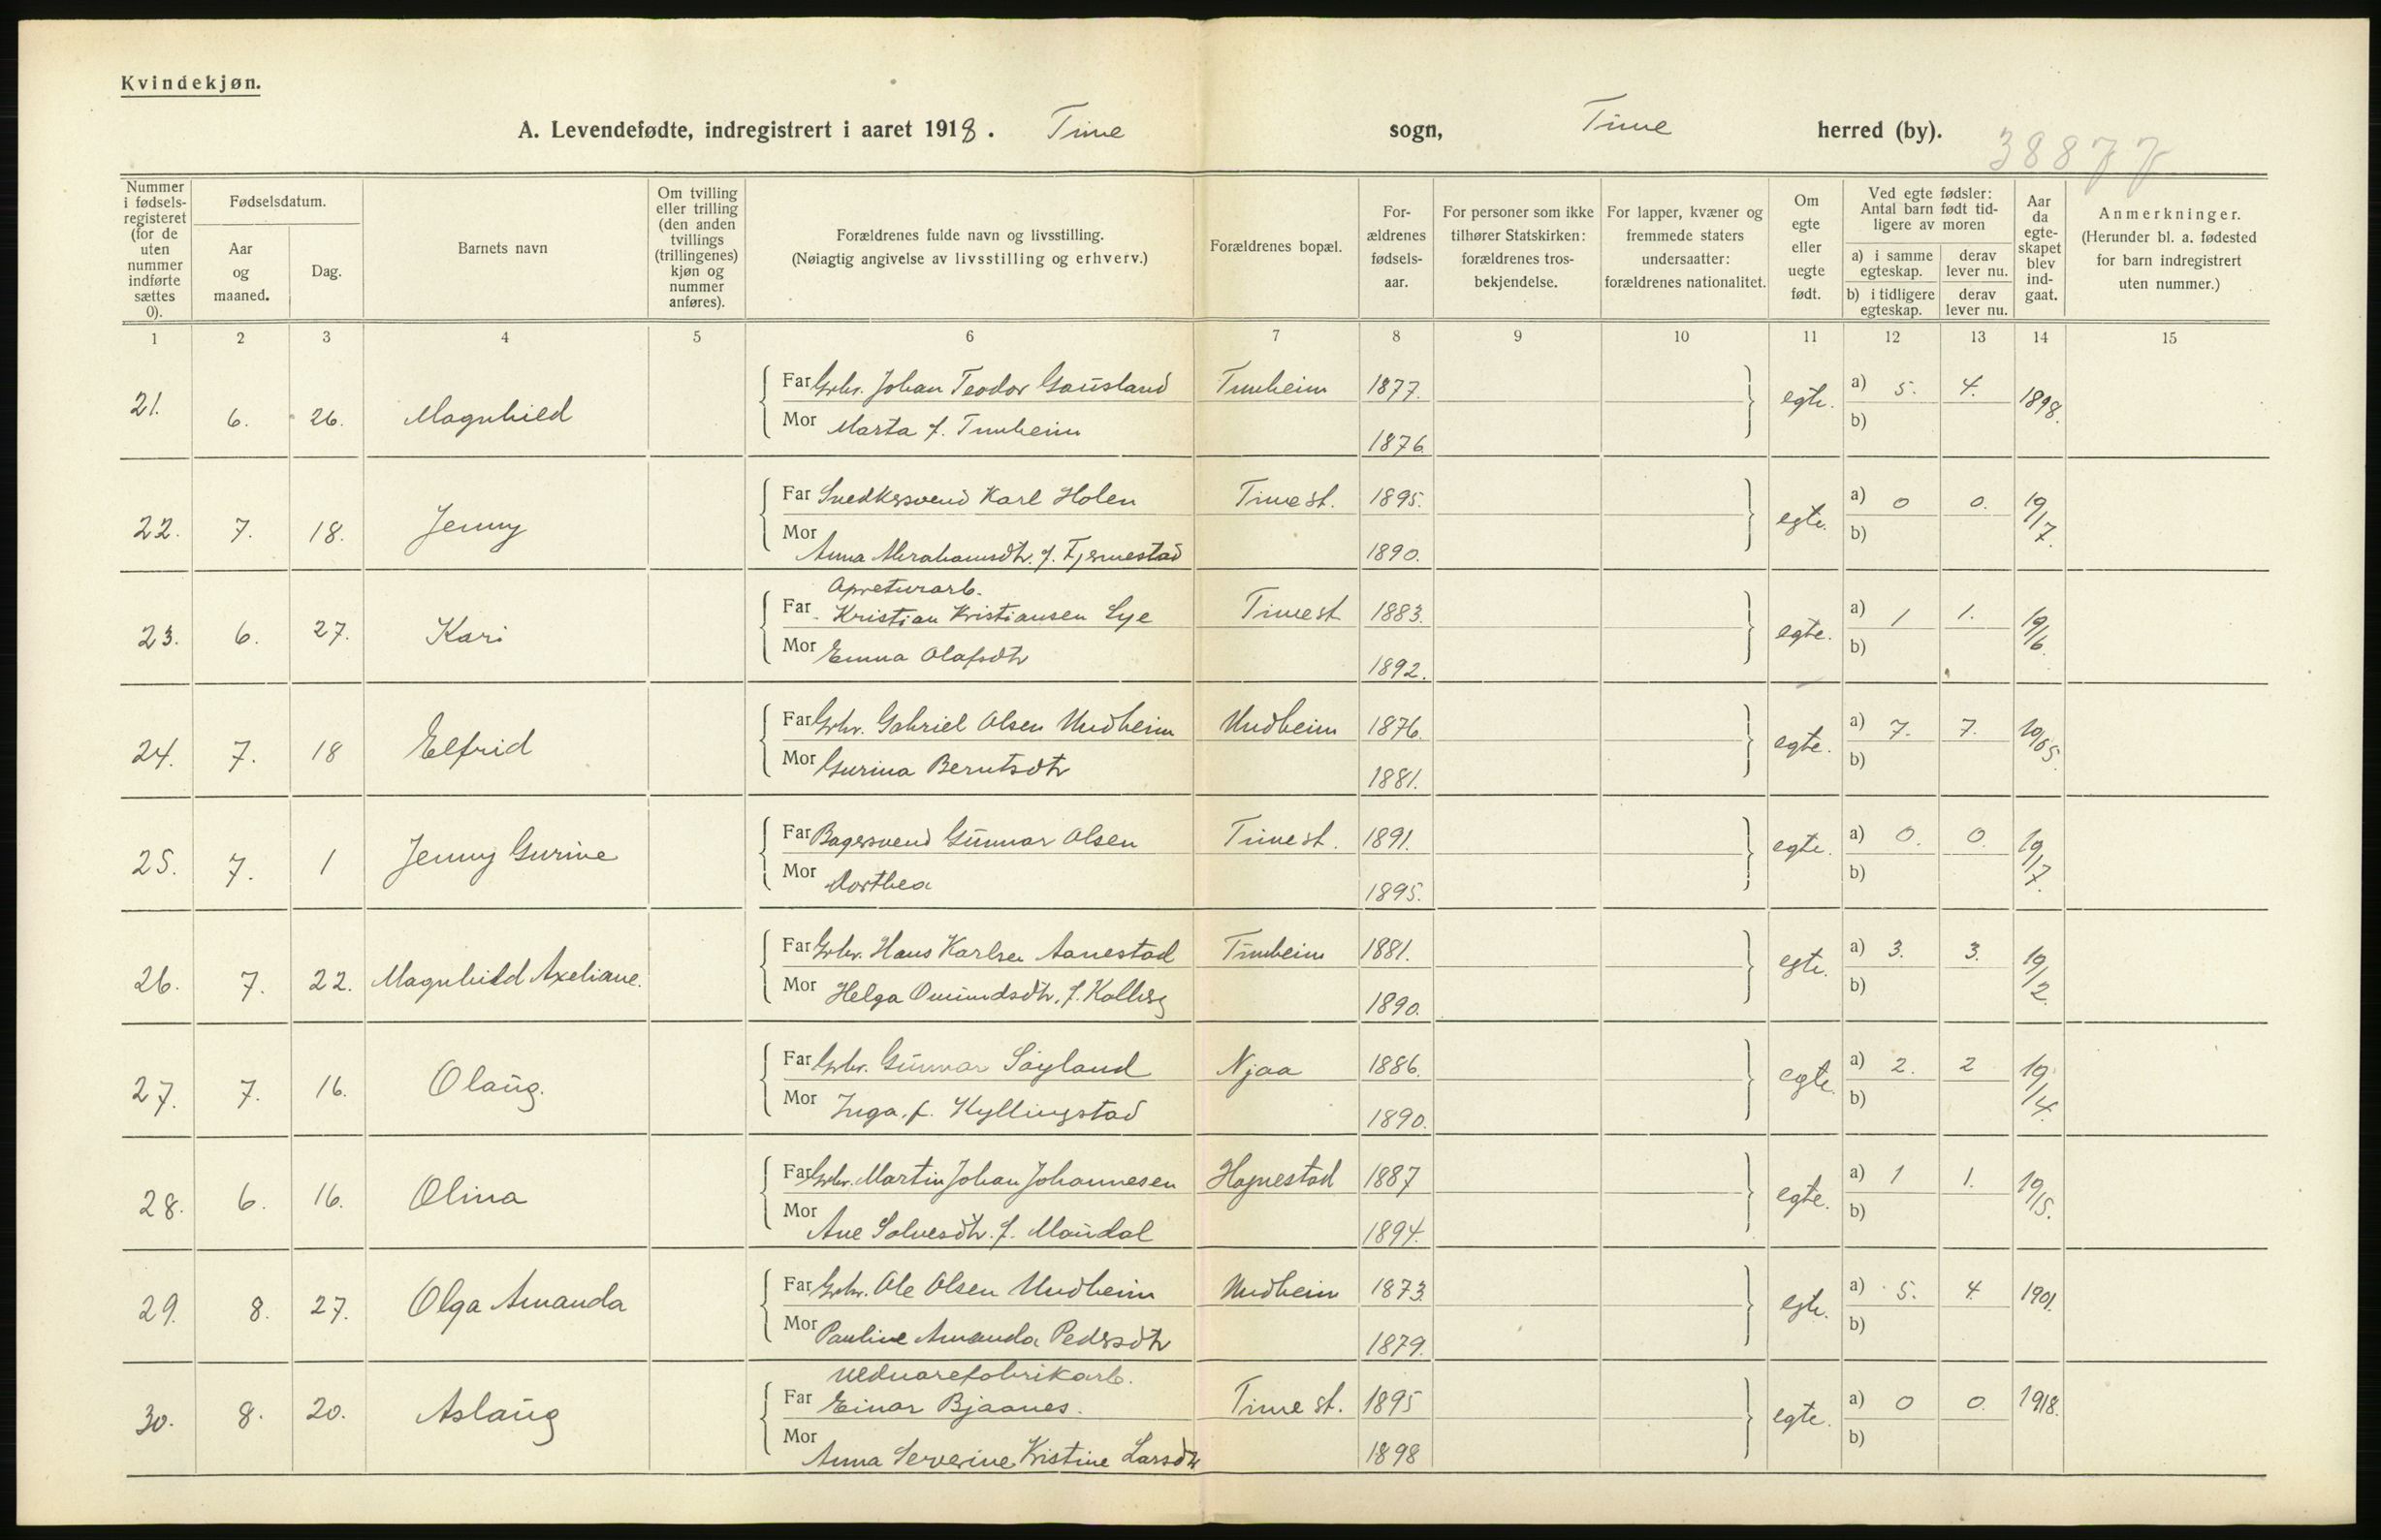 Kvindekjøn.
A. Levendefødte, indregistrert i aaret 1918. Time sogn, Time herred (by).
38877
Nummer i fødsels-registeret (for de uten nummer indførte sættes 0).
Fødselsdatum.
Aar og maaned.
Dag.
Barnets navn
Om tvilling eller trilling (den anden tvillings (trillingenes) kjøn og nummer anføres).
Forældrenes fulde navn og livsstilling.
(Nøiagtig angivelse av livsstilling og erhverv.)
Forældrenes bopæl.
For-ældrenes fødsels-aar.
For personer som ikke tilhører Statskirken: forældrenes tros-bekjendelse.
For lapper, kvæner og fremmede staters undersaatter: forældrenes nationalitet.
Om egte eller uegte født.
Ved egte fødsler: Antal barn født tid-ligere av moren
a) i samme egteskap. derav lever nu.
b) i tidligere egteskap. derav lever nu.
Aar da egte-skapet blev ind-gaat.
Anmerkninger.
(Herunder bl. a. fødested for barn indregistrert uten nummer.)
1 2 3 4 5 6 7 8 9 10 11 12 13 14 15
21. 6. 26. Magnhild Far Grbr. Johan Teodor Gausland Tunheim 1877. egte. a) 5. 4. 1898.
Mor Marta f. Tunheim 1876. b)
22. 7. 18. Jenny Far Snedkersvend Karl Holen Time st. 1895. egte. a) 0 0. 19/17.
Mor Anna Abrahamsdtr. f. Fjermestad 1890. b)
Apreturarb.
23. 6. 27. Kari Far Kristian Kristiansen Lye Time st 1883. egte. a) 1 1. 19/16.
Mor Emma Olafsdtr 1892. b)
24. 7. 18 Elfrid Far Grbr. Gabriel Olsen Undheim Undheim 1876. egte. a) 7. 7. 19/05.
Mor Gurina Berntsdtr 1881. b)
25. 7. 1 Jenny Gurine Far Bagersvend Gunnar Olsen Time st. 1891. egte. a) 0. 0. 19/17.
Mor Dorthea 1895. b)
26. 7. 22. Magnhild Axeliane. Far Grbr. Hans Karlsen Aanestad Tunheim 1881. egte. a) 3. 3. 19/12.
Mor Helga Omundsdtr. f. Kalberg 1890. b)
27. 7. 16. Olaug. Far Grbr. Gunnar Søyland Njaa 1886. egte. a) 2. 2 19/14.
Mor Inga. f. Kyllingstad 1890. b)
28. 6. 16. Olina Far Grbr. Martin Johan Johannesen Hognestad 1887 egte. a) 1 1. 19/15.
Mor Ane Solvesdtr. f. Maudal 1894. b)
29. 8. 27. Olga Amanda Far Grbr. Ole Olsen Undheim Undheim 1873. egte. a) 5. 4. 1901.
Mor Pauline Amanda Pedersdtr 1879. b)
Uldvarefabrikarb.
30. 8. 20. Aslaug Far Einar Bjaanes. Time st. 1895 egte. a) 0 0. 1918.
Mor Anna Serverine Kristine Larsdtr 1898 b)